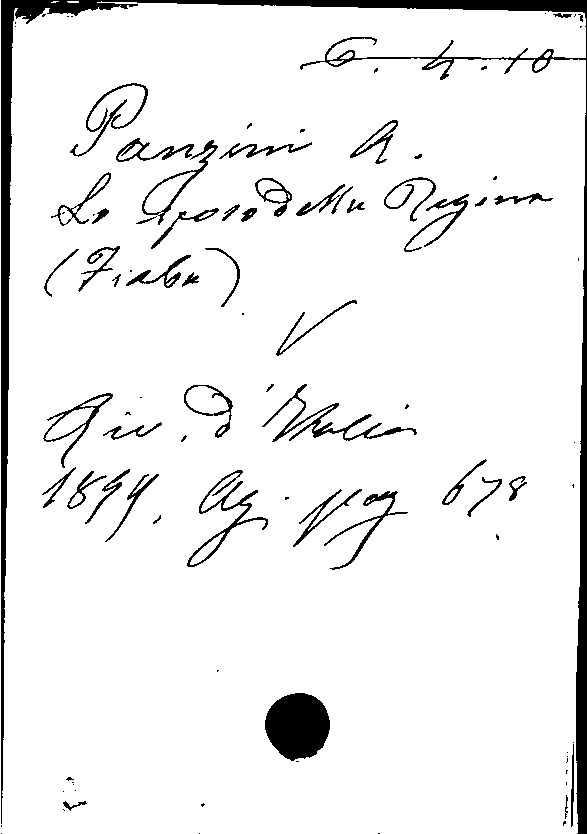 6. 4. 10
Panzini A.
Lo sposo della Regina
(Fiaba)
V
Riv. d'Italia
1899, Ag. pag 678